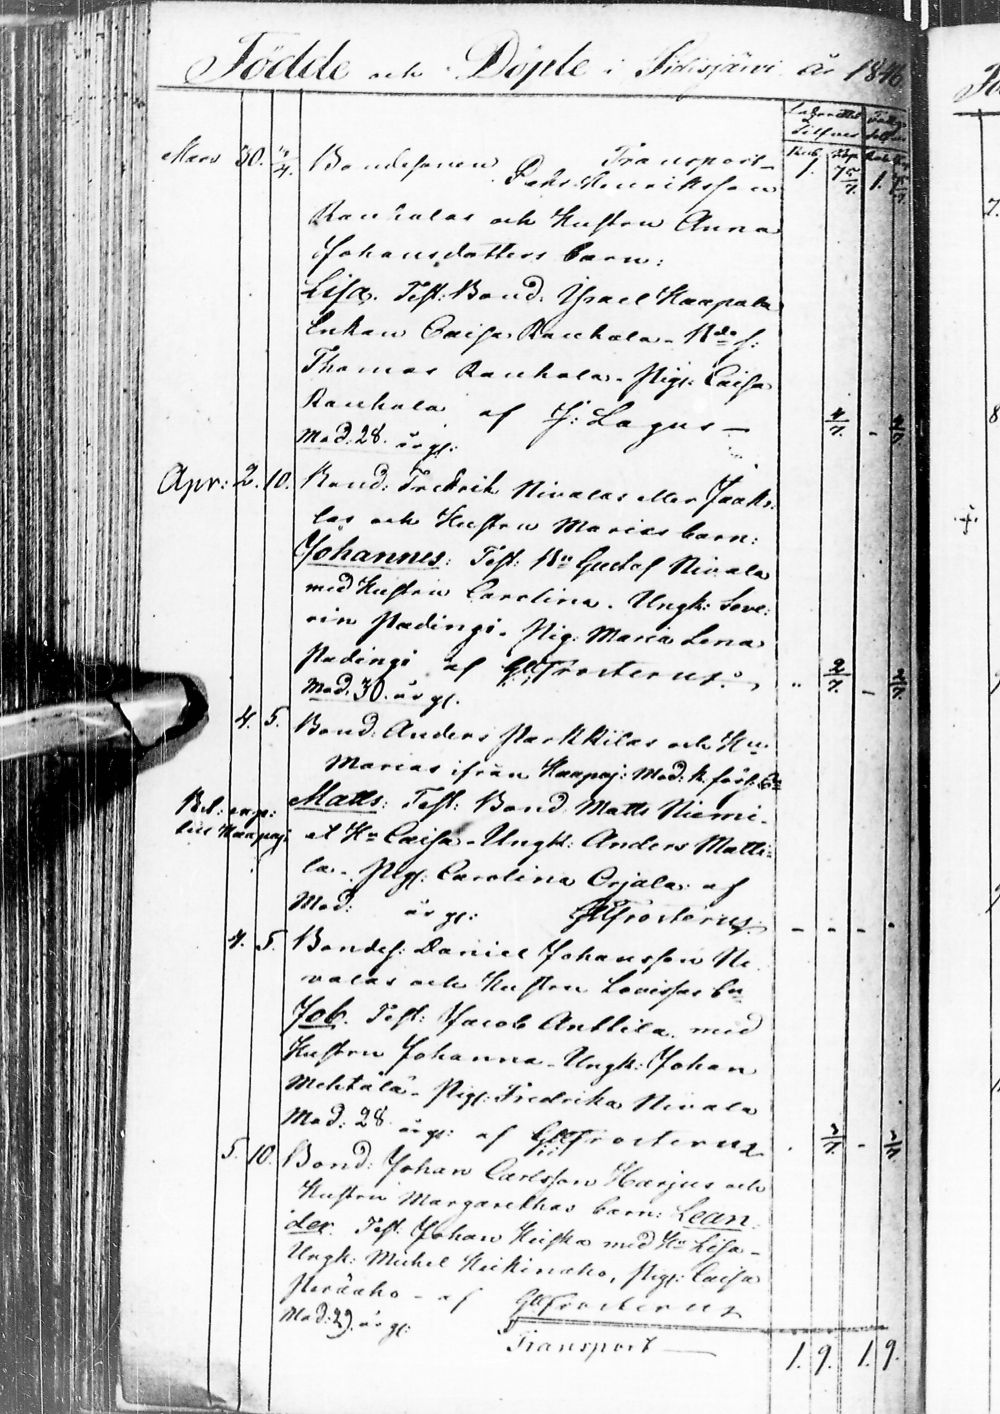 Födde och Döpte i Pidisjärvi År 1846
Transport 1. 1.
Mars 30. Bondesonen Henriksson
Rauhalas och Hustru Anna
Johansdotters barn:
Lisa. Test: Bond. Israel Haapala
Enkan Caisa Rauhala. s:
Thomas Rauhala. Pig: Caisa
Rauhala af J: Lagus
Mod: 28. år gl:
Apr: 2. 10. Bond: Fredrik Nivalas eller Jaak
las och Hustru Marias barn:
Johannes: Test: Bn Gustaf Nivala
med Hustru Carolina. Ungk: Seve:
rin Padingi. Pig: Maria Lena
Padingi af Frosterus. 2/7. 2/7.
Mod. 30. år gl.
4. 5. Bond. Anders Parkkilas och Hu:
Marias ifrån Haapaj: Mod: k. först:
till Haapaj:
Matts: Test: Bond Matts Niemi-
et Hu Caisa. Ungk: Anders Matti=
la. Pig: Carolina Orjala. af
Mod: år gl: Frosterus
4. 5. Bondes: Daniel Johansson Ni
valas och Hustru Lovisas bn
Job. Test: Jacob Anttila med
Hustru Johanna. Ungk: Johan
Mehtälä. Pig: Fredrika Nivala
Mod: 28 år gl: af Frosterus
5. 10. Bond: Johan Carlsson Harjus och
Hustru Margarethas barn: Lean
der. Test. Johan Hiiska med Hu Lisa
Ungk: Michel Heikinaho, Pig: Caisa
Peräaho - af Frosterus
Mod: 29. år gl:
Transport 1. 9. 1. 9.